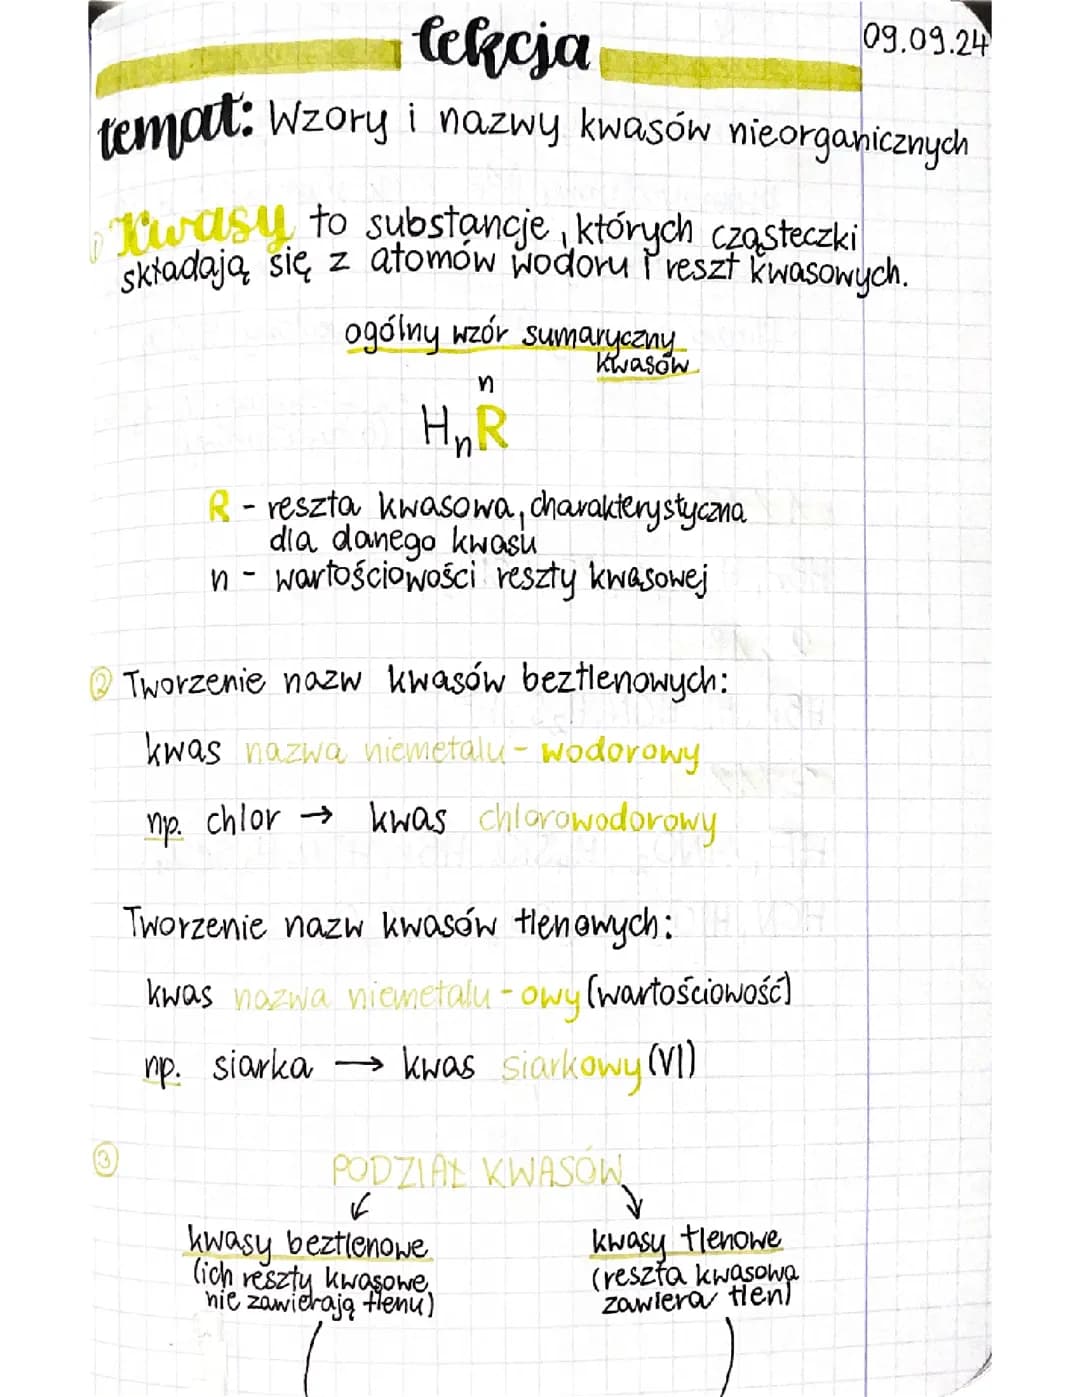 lekcja
09.09.24
temat: Wzory i nazwy kwasów nieorganicznych
① Kwasy to substancje, których cząsteczki
składają się z atomów wodoru i reszt kwasowych.
ogólny wzór sumaryczny
kwasów
n
HₙR
R - reszta kwasowa, charakterystyczna
dla danego kwasu
n - wartościowości reszty kwasowej
② Tworzenie nazw kwasów beztlenowych:
kwas nazwa niemetalu - wodorowy
np. chlor → kwas chlorowodorowy
Tworzenie nazw kwasów tlenowych:
kwas nazwa niemetalu - owy (wartościowość)
np. siarka → kwas siarkowy (VI)
③ PODZIAŁ KWASÓW
kwasy beztlenowe
(ich reszty kwasowe
nie zawierają tlenu)
kwasy tlenowe
(reszta kwasowa
zawiera tlen)